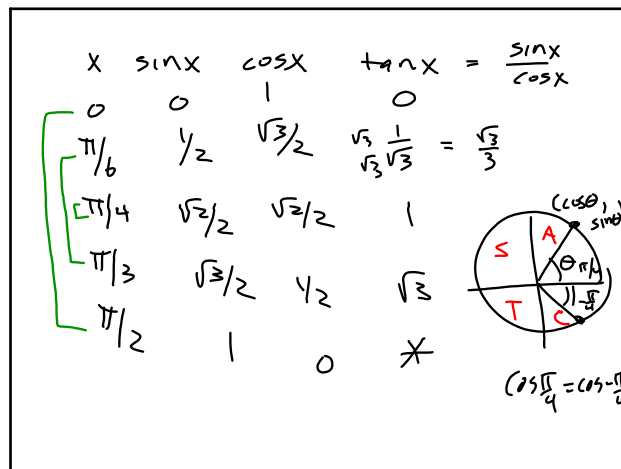 x sinx cosx tanx = sinx/cosx
0 0 1 0
π/6 1/2 √3/2 √3/√3 1/√3 = √3/3
π/4 √2/2 √2/2 1
π/3 √3/2 1/2 √3
π/2 1 0 *
(cosθ, sinθ
S A
θ
-π/4
T C
cos π/4 = cos -π/4